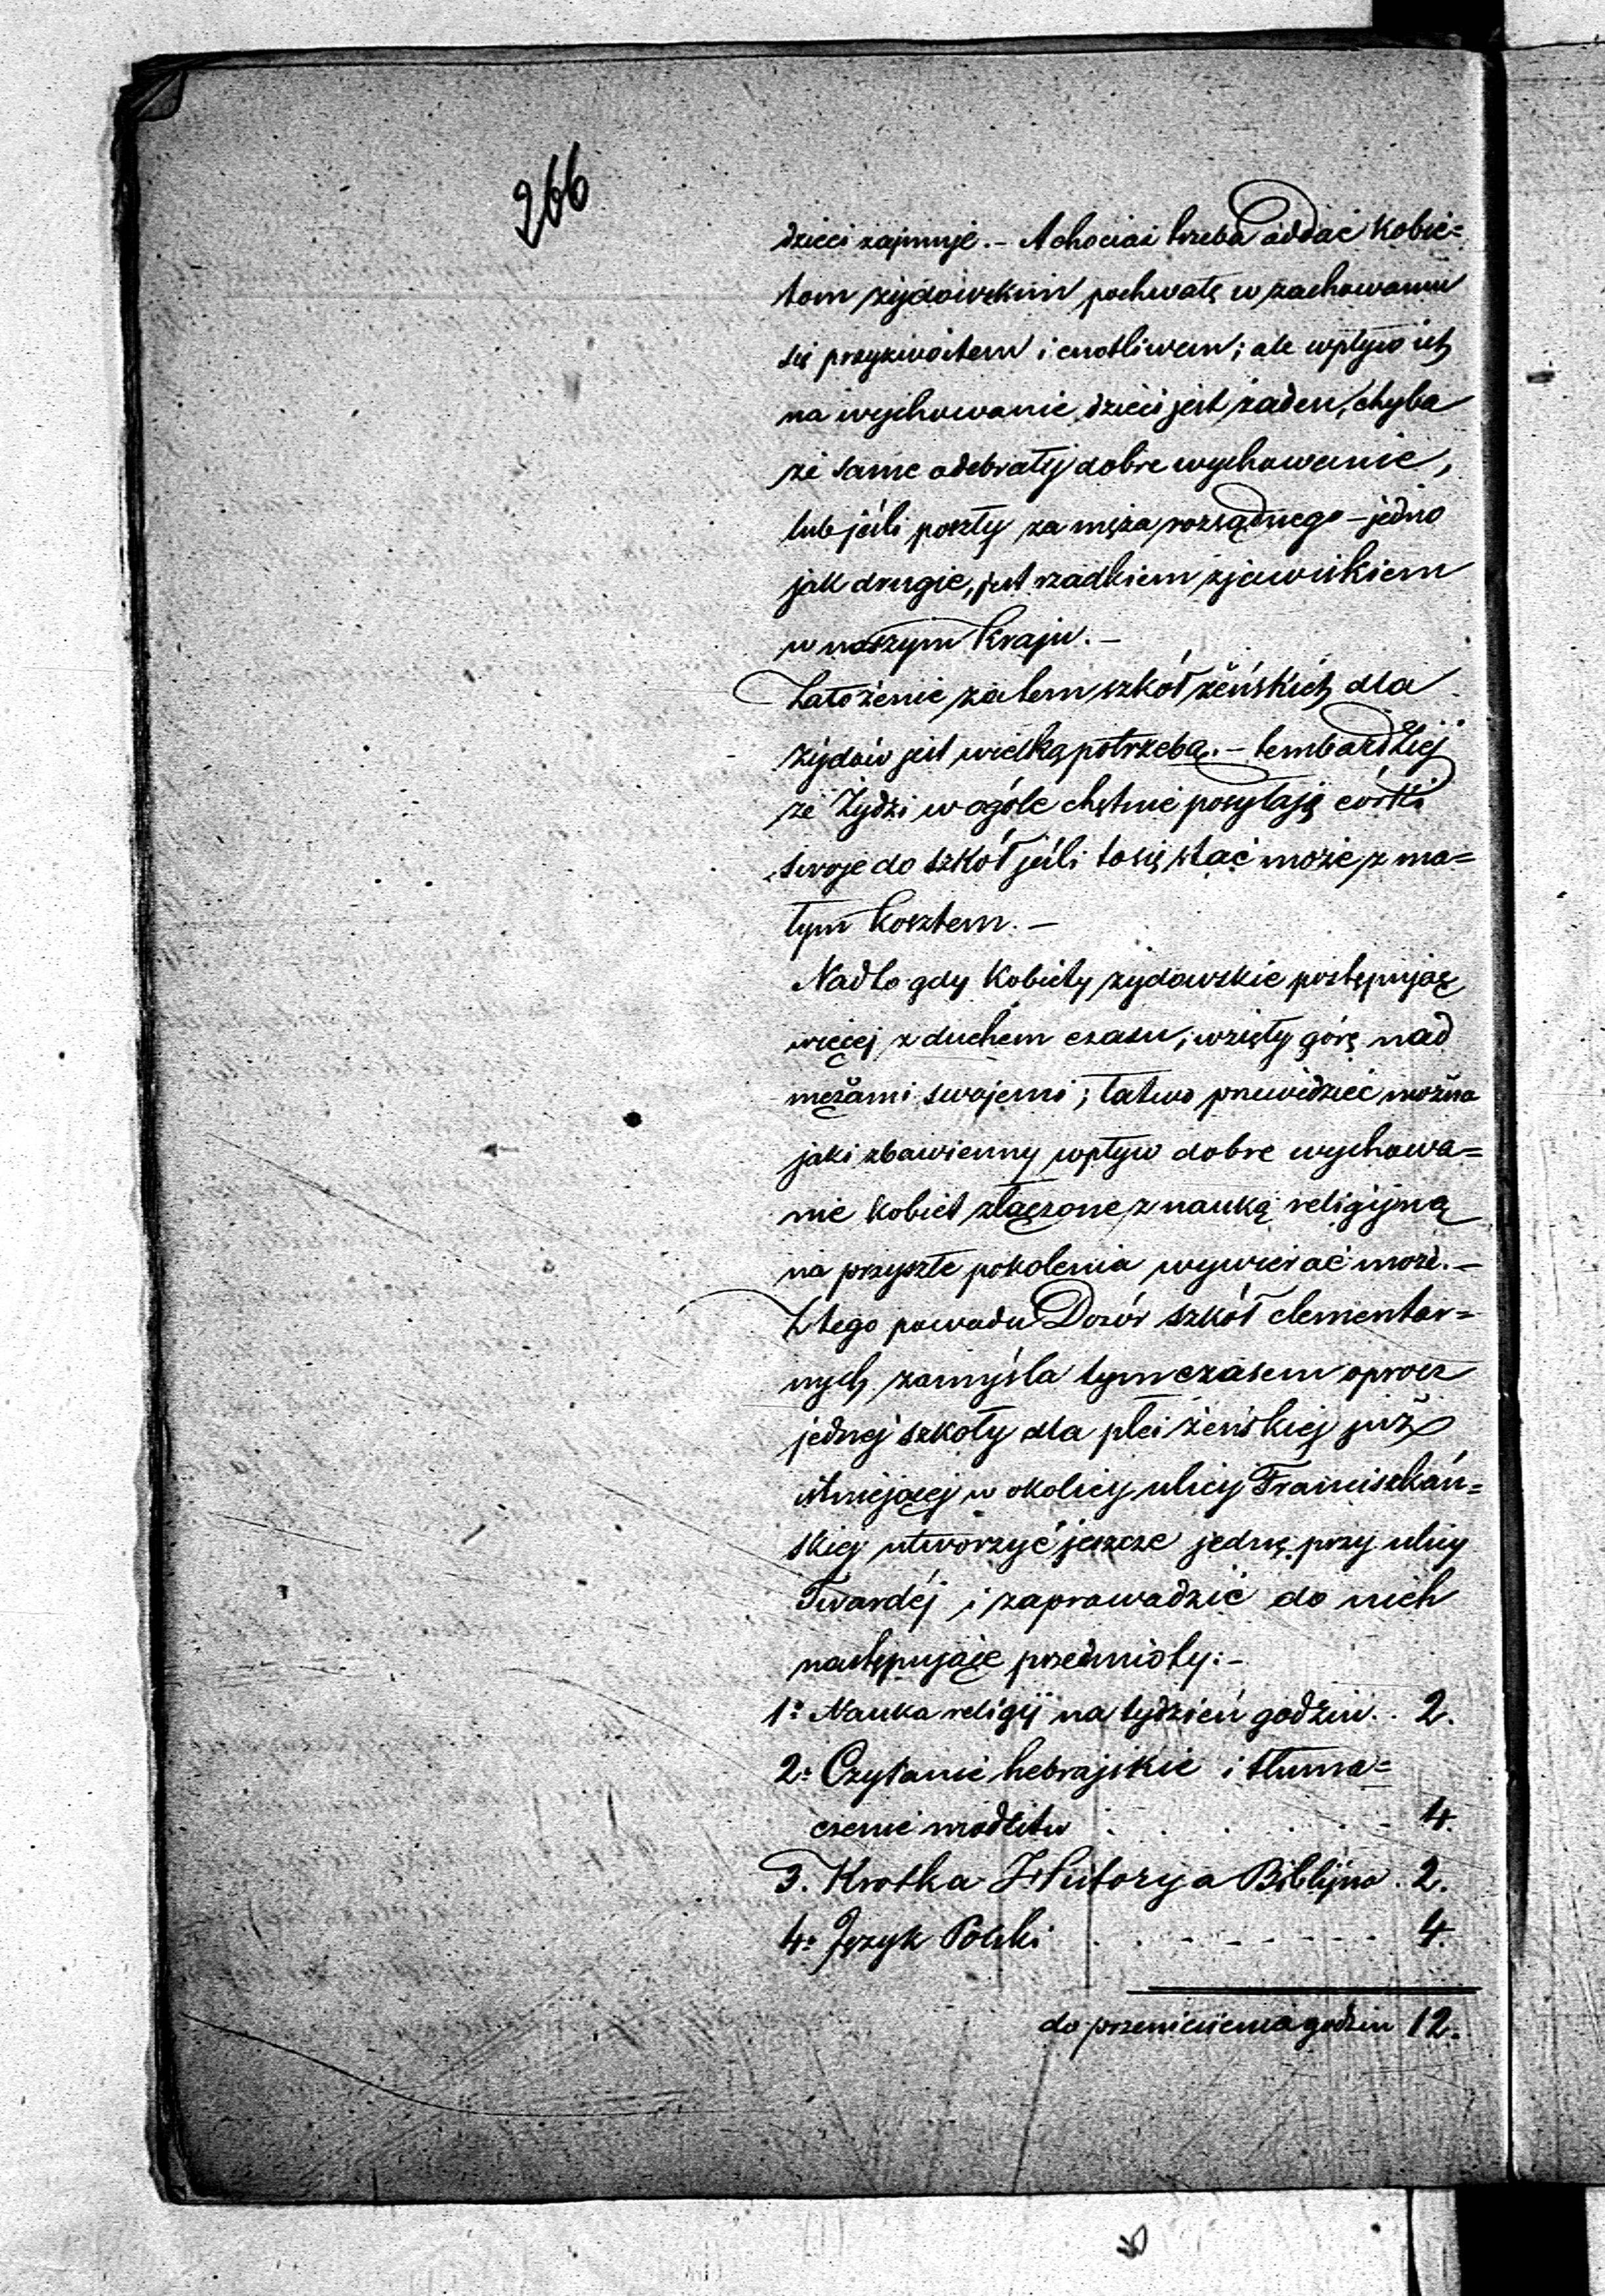 266
dzieci zajmuje. – A chociaż trzeba oddać Kobie=
tom żydowskim pochwałę w zachowaniu
się przyzwoitem i cnotliwem; ale wpływ ich
na wychowanie dzieci jest żaden, chyba
że same odebrały dobre wychowanie,
lub jeśli poszły za męża rozsądnego – jedno
jak drugie, jest rzadkiem zjawiskiem
w naszym Kraju. –
Założenie zatem szkół żeńskich dla
żydów jest wielką potrzebą. – tembardziej
że Żydzi w ogóle chętnie posyłają córki
swoje do szkół jeśli to się stać może z ma=
łym kosztem. –
Nadto gdy Kobiety żydowskie postępując
więcej z duchem czasu, wzięły górę nad
mężami swojemi; łatwo przewidzieć można
jaki zbawienny wpływ dobre wychowa=
nie kobiet złączone z nauką religijną
na przyszłe pokolenia wywierać może. –
Z tego powodu Dozór szkół elementar=
nych zamyśla tymczasem oprócz
jednej szkoły dla płci żeńskiej już
istniejącej w okolicy ulicy Franciszkań=
skiej utworzyć jeszcze jednę przy ulicy
Twardéj i zaprowadzić do nich
następujące przedmioty: –
1º Nauka religij na tydzień godzin . . 2.
2º Czytanie hebrajskie i tłuma=
czenie modlitw . . . . . . 4.
3. Krotka Historya Biblijna . 2.
4º Język Polski . . - - - - - - 4.
do przeniesienia godzin 12.